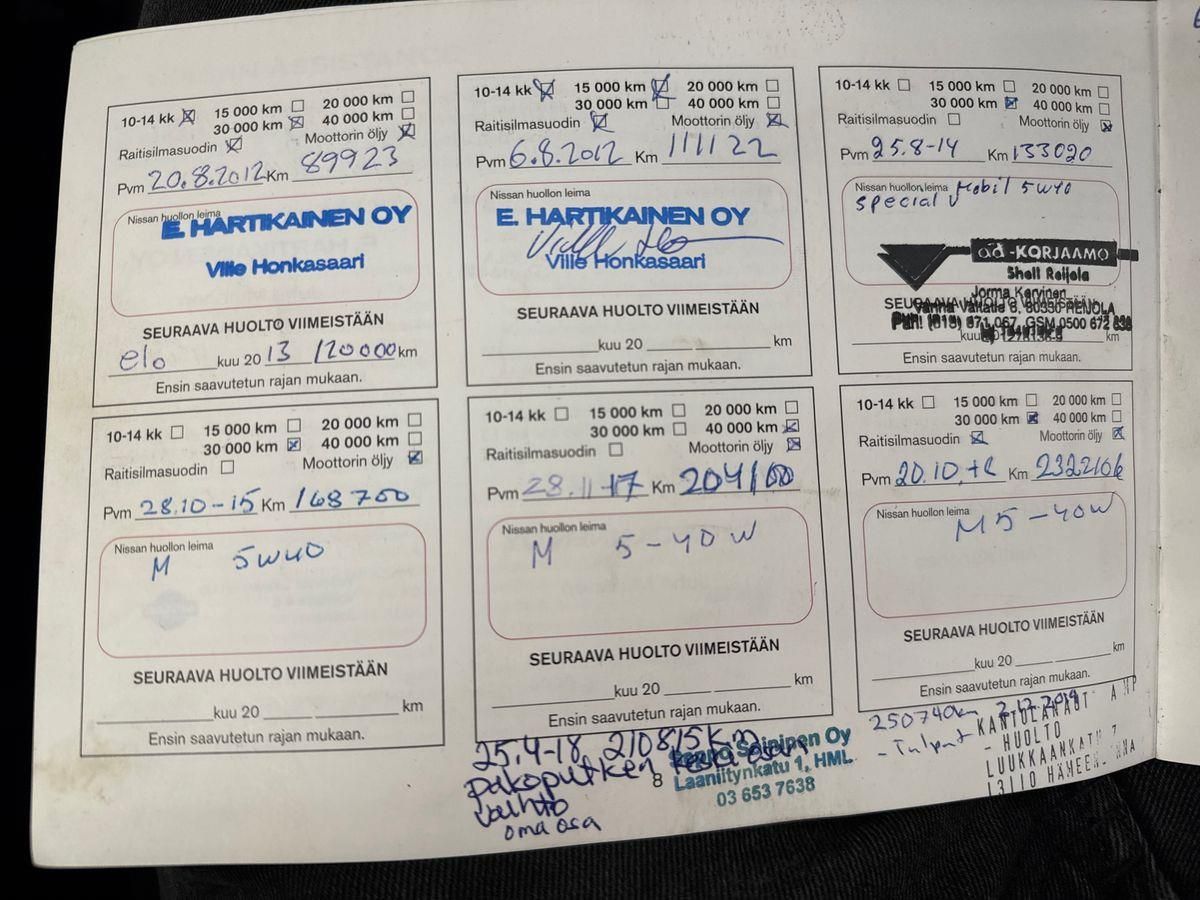 10-14 kk 15 000 km 20 000 km
30 000 km 40 000 km
Raitisilmasuodin Moottorin öljy
Pvm 20.8.2012 Km 89923
Nissan huollon leima
E. HARTIKAINEN OY
Ville Honkasaari
SEURAAVA HUOLTO VIIMEISTÄÄN
elo kuu 20 13 /120000 km
Ensin saavutetun rajan mukaan.
10-14 kk 15 000 km 20 000 km
30 000 km 40 000 km
Raitisilmasuodin Moottorin öljy
Pvm 6.8.2012 Km 111122
Nissan huollon leima
E. HARTIKAINEN OY
Ville Honkasaari
SEURAAVA HUOLTO VIIMEISTÄÄN
kuu 20 km
Ensin saavutetun rajan mukaan.
10-14 kk 15 000 km 20 000 km
30 000 km 40 000 km
Raitisilmasuodin Moottorin öljy
Pvm 25.8-14 Km 133020
Nissan huollon leima Mobil 5W40
special V
ad-KORJAAMO
Shell Reijola
Jorma Karvinen
80330 REIJOLA
Puh. (013) 671 067, GSM 0500 672
kuu km
Ensin saavutetun rajan mukaan.
10-14 kk 15 000 km 20 000 km
30 000 km 40 000 km
Raitisilmasuodin Moottorin öljy
Pvm 28.10-15 Km 168700
Nissan huollon leima
M 5W40
SEURAAVA HUOLTO VIIMEISTÄÄN
kuu 20 km
Ensin saavutetun rajan mukaan.
10-14 kk 15 000 km 20 000 km
30 000 km 40 000 km
Raitisilmasuodin Moottorin öljy
Pvm 28.11-17 Km 204100
Nissan huollon leima
M 5-40W
SEURAAVA HUOLTO VIIMEISTÄÄN
kuu 20 km
Ensin saavutetun rajan mukaan.
10-14 kk 15 000 km 20 000 km
30 000 km 40 000 km
Raitisilmasuodin Moottorin öljy
Pvm 20.10. Km
Nissan huollon leima
M 5-40W
SEURAAVA HUOLTO VIIMEISTÄÄN
kuu 20 km
Ensin saavutetun rajan mukaan.
25.4-18 210815km
pakoputken keskiosan
vaihto
oma osa
8
Seppo Oy
Laaniitynkatu 1, HML
03 653 7638
250740km 2.12.2019
- Tulpat
- HUOLTO
LUUKKAANKATU 7
13110